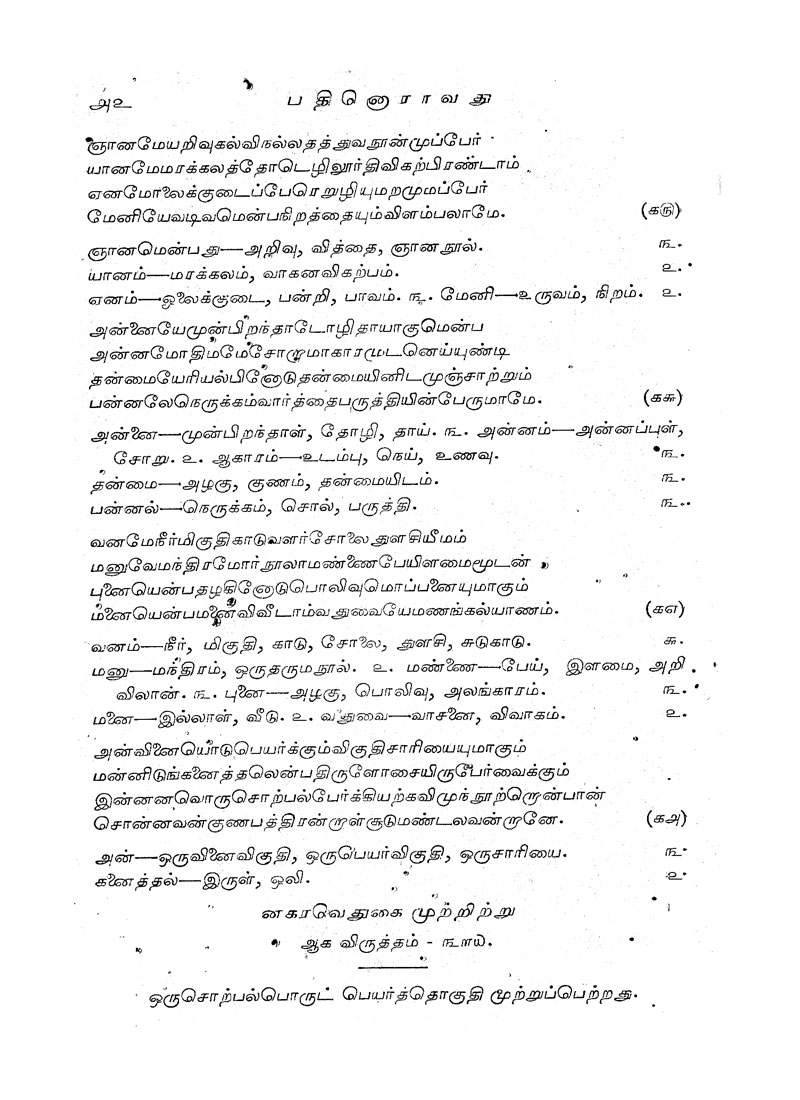 அ௨ பதினொராவது
ஞானமேயறிவுகல்விநல்லதத்துவநூன்முப்பேர்
யானமேமரக்கலத்தோடெழிலூர்திவிகற்பிரண்டாம்
ஏனமோலைக்குடைப்பேரெறுழியுமறமுமப்பேர்
மேனியேவடிவமென்பநிறத்தையும்விளம்பலாமே. (க௫)
ஞானமென்பது—அறிவு, வித்தை, ஞானநூல். ௩.
யானம்—மரக்கலம், வாகனவிகற்பம். ௨.
ஏனம்—ஓலைக்குடை, பன்றி, பாவம். ௩. மேனி—உருவம், நிறம். ௨.
அன்னையேமுன்பிறந்தாடோழிதாயாகுமென்ப
அன்னமோதிமமேசோறாமாகாரமுடனெய்யுண்டி
தன்மையேரியல்பினோடுதன்மையினிடமுஞ்சாற்றும்
பன்னலேநெருக்கம்வார்த்தைபருத்தியின்பேருமாமே. (க௬)
அன்னை—முன்பிறந்தாள், தோழி, தாய். ௩. அன்னம்—அன்னப்புள்,
சோறு. ௨. ஆகாரம்—உடம்பு, நெய், உணவு. ௩.
தன்மை—அழகு, குணம், தன்மையிடம். ௩.
பன்னல்—நெருக்கம், சொல், பருத்தி. ௩.
வனமேநீர்மிகுதிகாடுவளர்சோலைதுளசியீமம்
மனுவேமந்திரமோர்நூலாமண்ணைபேயிளமைமூடன்
புனையென்பதழகினோடுபொலிவுமொப்பனையுமாகும்
மனையென்பமனைவிவீடாம்வதுவையேமணங்கல்யாணம். (க௭)
வனம்—நீர், மிகுதி, காடு, சோலை, துளசி, சுடுகாடு. ௬.
மனு—மந்திரம், ஒருதருமநூல். ௨. மண்ணை—பேய், இளமை, அறி
விலான். ௩. புனை—அழகு, பொலிவு, அலங்காரம். ௩.
மனை—இல்லாள், வீடு. ௨. வதுவை—வாசனை, விவாகம். ௨.
அன்வினையொடுபெயர்க்கும்விகுதிசாரியையுமாகும்
மன்னிடுங்கனைத்தலென்பதிருளோசையிருபேர்வைக்கும்
இன்னனவொருசொற்பல்பேர்க்கியற்கவிமுந்நூற்றென்பான்
சொன்னவன்குணபத்திரன்றாள்சூடுமண்டலவன்றானே. (க௮)
அன்—ஒருவினைவிகுதி, ஒருபெயர்விகுதி, ஒருசாரியை. ௩
கனைத்தல்—இருள், ஒலி. ௨
னகரவெதுகை முற்றிற்று
ஆக விருத்தம் - ௩௱௰.
ஒருசொற்பல்பொருட் பெயர்த்தொகுதி மூற்றுப்பெற்றது.